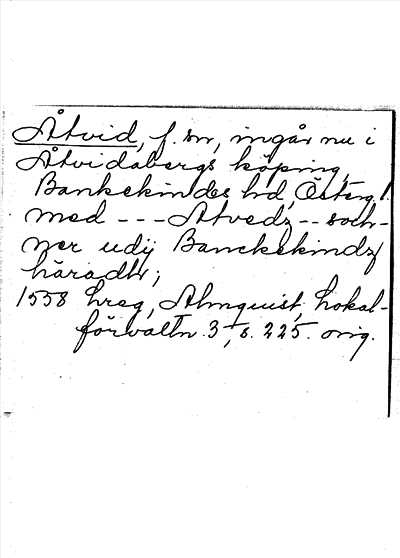 Åtvid, f. sn, ingår nu i
Åtvidabergs köping,
Bankekindes hd, Österg.l.
med --- Atvedz -- soch-
ner udij Banckekindz
häradt;
1558 hreg, Almquist, Lokal-
förvaltn. 3, s. 225. orig.